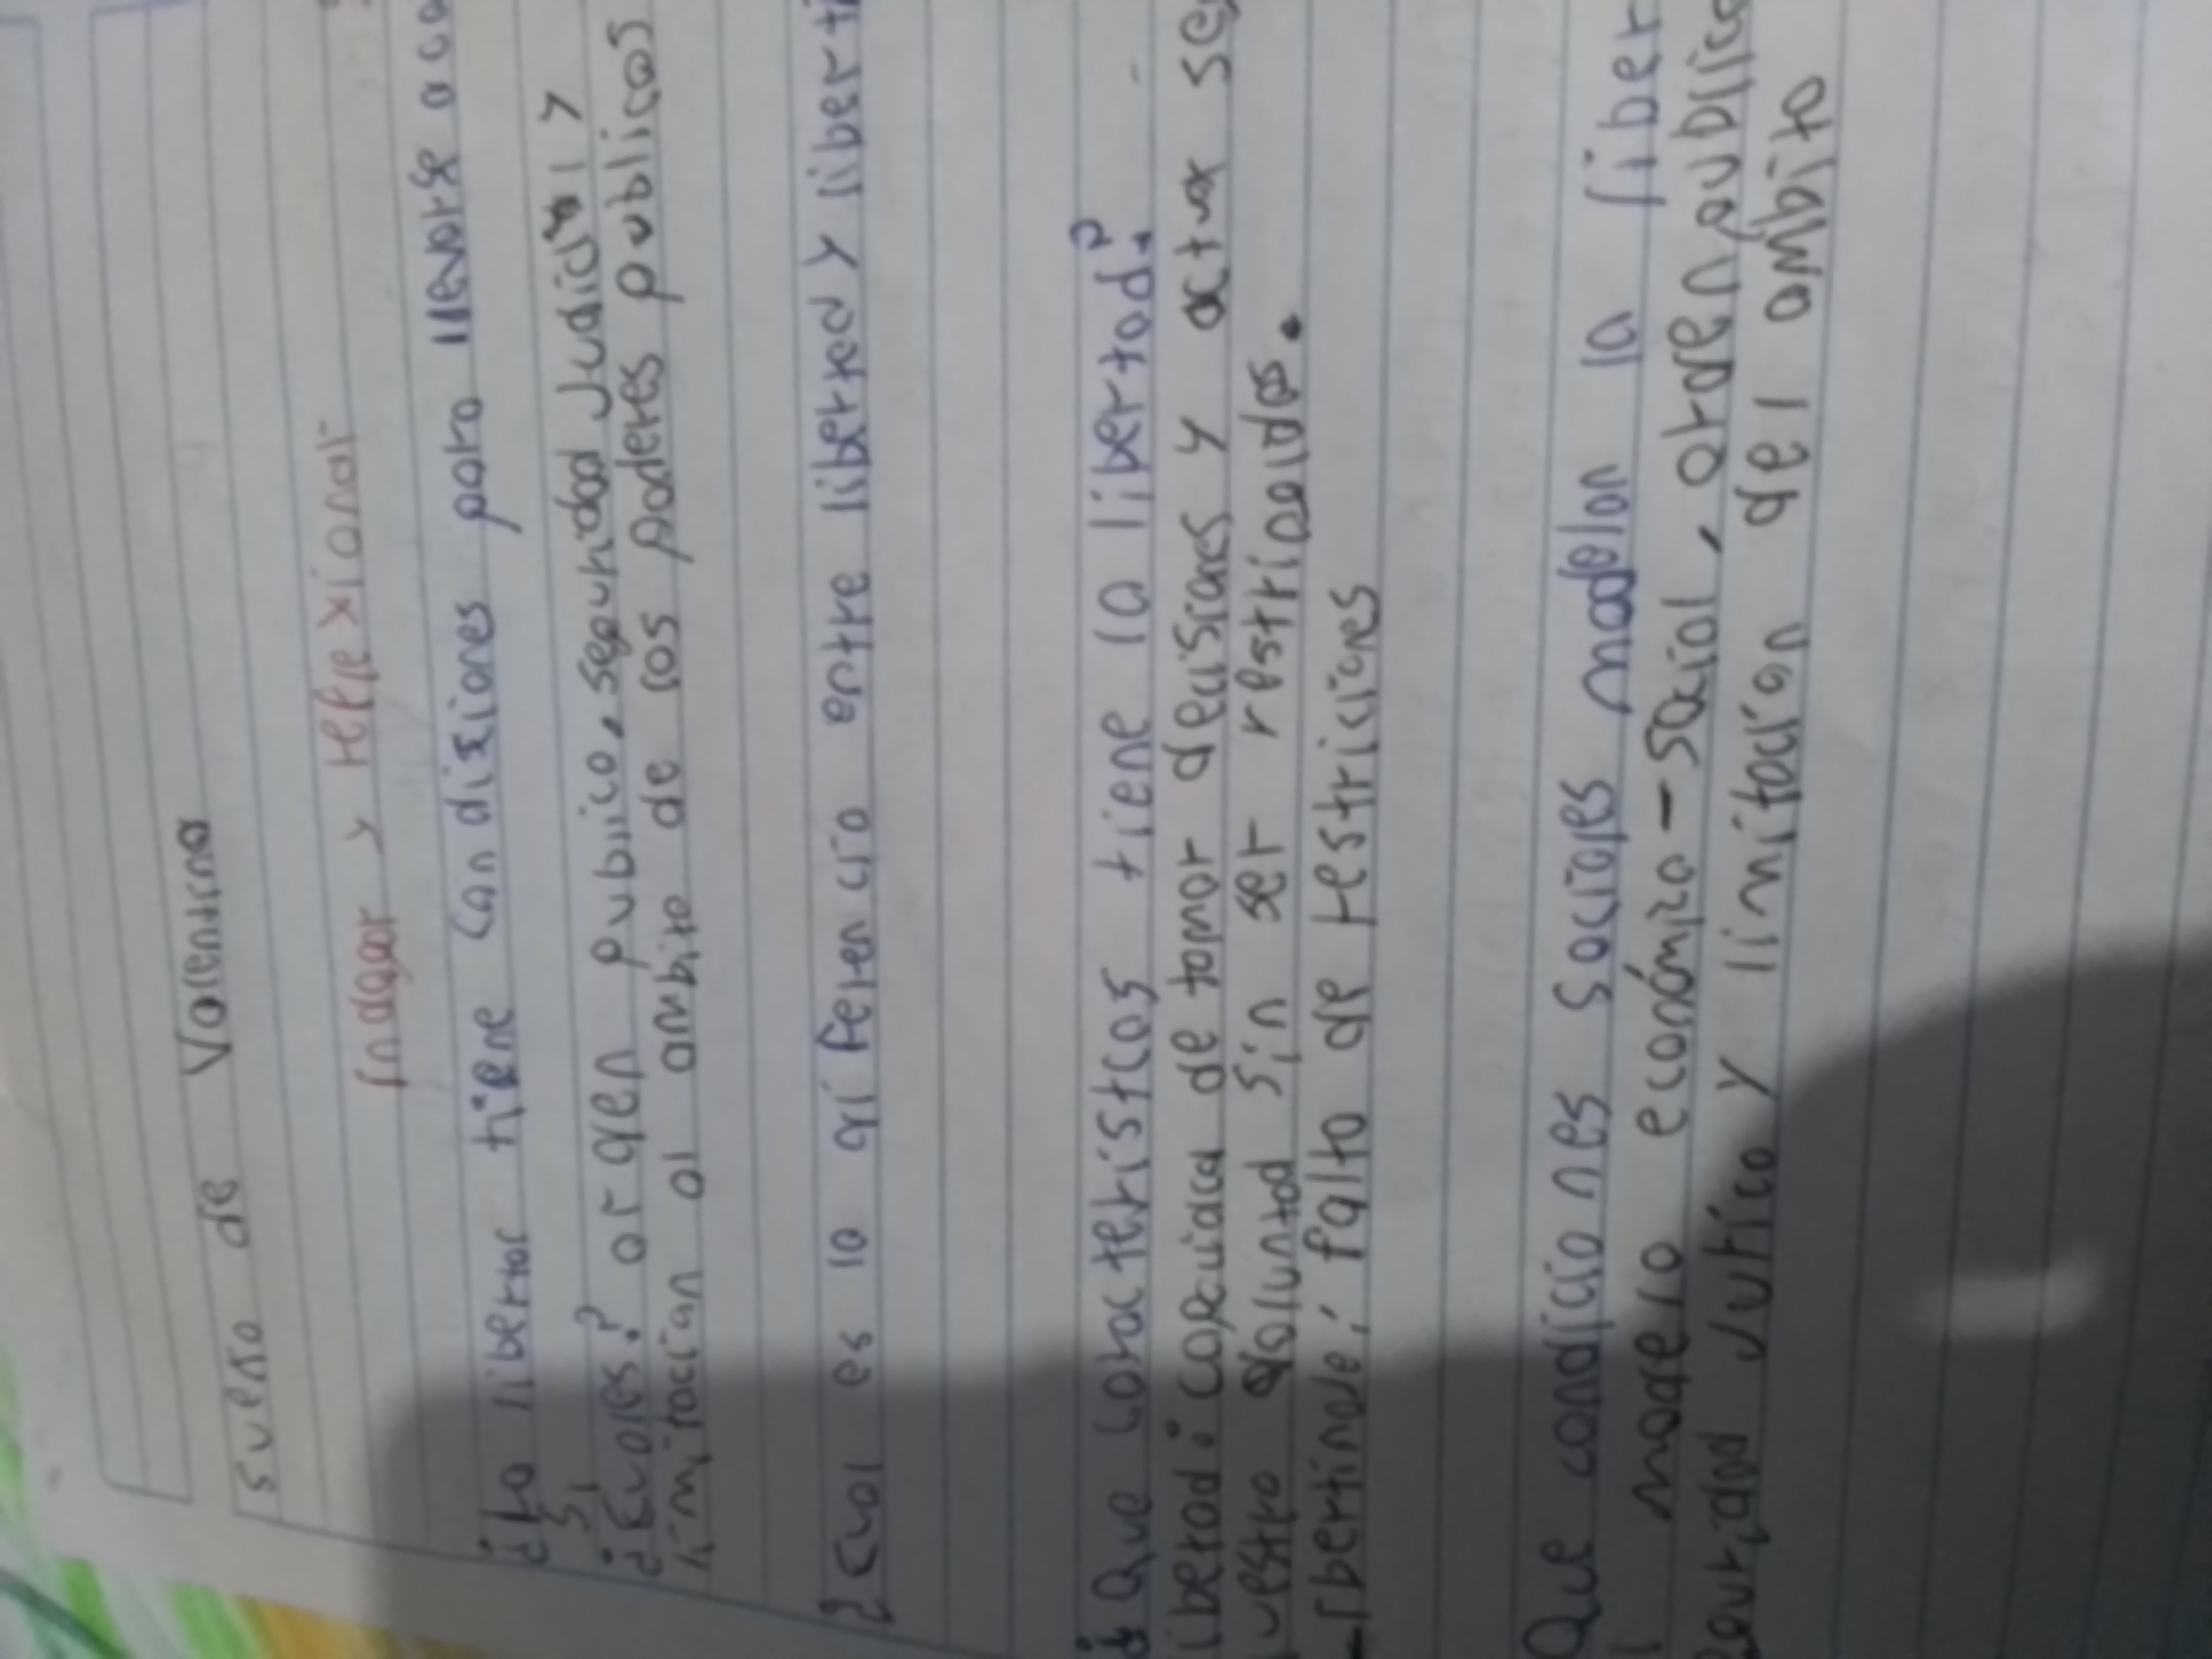 sueño de Valentina
Indagar y reflexionar
¿la libertar tiene condixiones para llevarse a ca
si
¿Cuales? or den publico, seguridad Judicial y
limitacion al ambito de los poderes publicos
¿Cual es la diferencia entre libertad y libert
¿Que caracteristcas tiene la libertad?
libertad: capacidad de tomar decisiones y actuar se
uestra voluntad sin ser restringidas.
-libertinaje: falta de restriciones
Que condicio nes sociales modelan la liber
modelo económico-social, orden publico
seguridad Jurica y limitacion del ambito